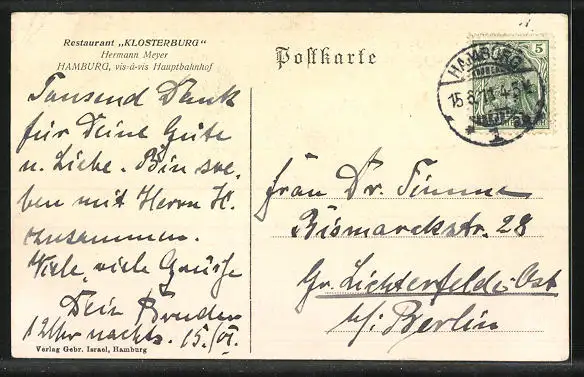 Restaurant „KLOSTERBURG“
Hermann Meyer
HAMBURG, vis-à-vis Hauptbahnhof
Postkarte
5
HAMBURG
15.6.11. 4-5
1
Tausend Dank
für Deine Güte
u. Liebe. Bin soe-
ben mit Herrn H.
zusammen.
Viele, viele Grüße
Dein Bruder
12 Uhr nachts. 15./VI.
Verlag Gebr. Israel, Hamburg
Frau Dr. Timme
Bismarckstr. 28
Gr. Lichterfelde-Ost
b/: Berlin